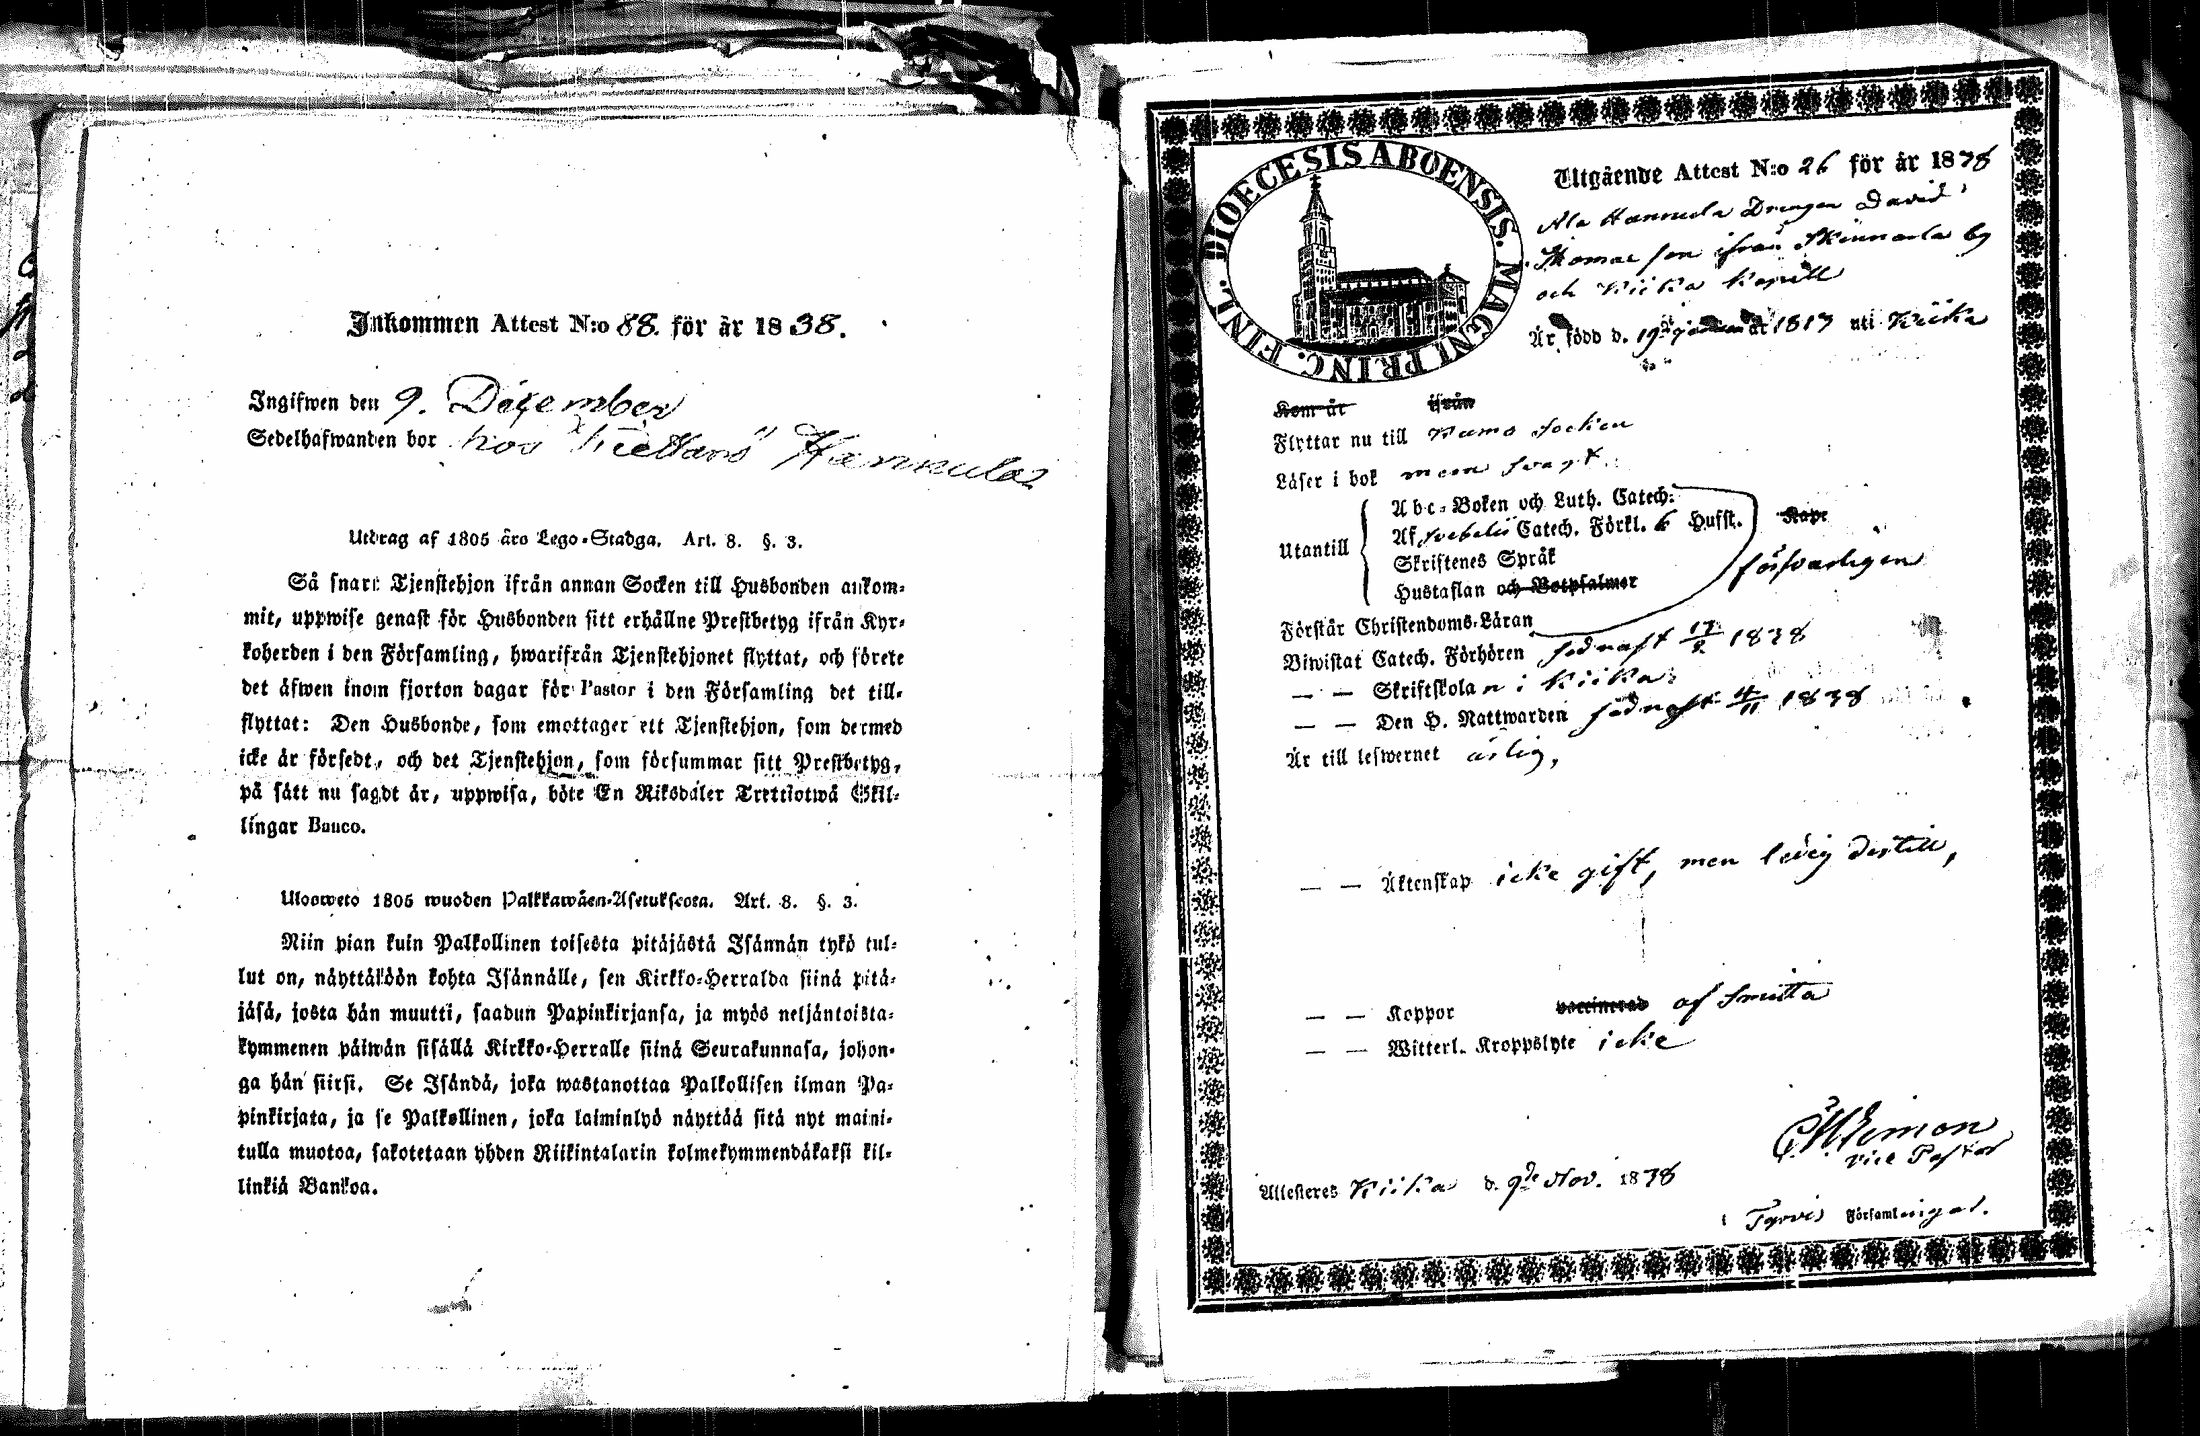 Inkommen Attest N:o 88. för år 1838.
Ingifwen den 9. December
Sedelhafwanden bor hos Hannula
Utdrag af 1805 års Lego-Stadga. Art. 8. §. 3.
Så snart Tjenstehjon ifrån annan Socken till Husbonden ankom-
mit, uppwise genast för Husbonden sitt erhållne Prestbetyg ifrån Kyr-
koherden i den Församling, hwarifrån Tjenstehjonet flyttat, och förete
det äfwen inom fjorton dagar för Pastor i den Församling det till-
flyttat: Den Husbonde, som emottager ett Tjenstehjon, som dermed
icke är försedt, och det Tjenstehjon, som försummar sitt Prestbetyg,
på sätt nu sagdt är, uppwisa, böte En Riksdaler Trettiotwå Skil-
lingar Banco.
Ulosweto 1805 wuoden Palkkawäen-Asetuksesta. Art. 8. §. 3.
Niin pian kuin Palkollinen toisesta pitäjästä Isännän tykö tul-
lut on, näyttäköön kohta Isännälle, sen Kirkko-Herralda siinä pitä-
jäsä, josta hän muutti, saadun Papinkirjansa, ja myös neljäntoista-
kymmenen päiwän sisällä Kirkko-Herralle siinä Seurakunnasa, johon-
ga hän siirsi. Se Isändä, joka wastanottaa Palkollisen ilman Pa-
pinkirjata, ja se Palkollinen, joka laiminlyö näyttää sitä nyt maini-
tulla muotoa, sakotetaan yhden Riikintalarin kolmekymmendäkaksi kil-
linkiä Bankoa.
DIOECESIS ABOENSIS. MAGNI PRINC. FINL.
Utgående Attest N:o 26 för år 1838
Ala Hannula Drengen David
Thomas son ifrån Skinnarla by
och Kiika Kapell
Är född d. 19de januari 1817 uti Kiika
Kom år ifrån
Flyttar nu till Kumo Socken
Läser i bok men svagt.
Utantill
Abc-Boken och Luth. Catech.
Af Svebelii Catech. Förkl. 6 Hufst. Kape
Skriftenes Språk
Hustaflan och Botpsalmer
försvarligen
Förstår Christendoms-Läran
Biwistat Catech. Förhören sednast 17/9 1838
— — Skriftskolan i Kiika
— — Den H. Nattwarden sednast 4/11 1838
Är till lefwernet ärlig,
— — Äktenskap icke gift, men ledig dertill,
— — Koppor vaccinerad af Smitta
— — Witterl. Kroppslyte icke
vice Pastor
Attesteres Kiika d. 9de Nov. 1838
i Tyrvis Församlingal.